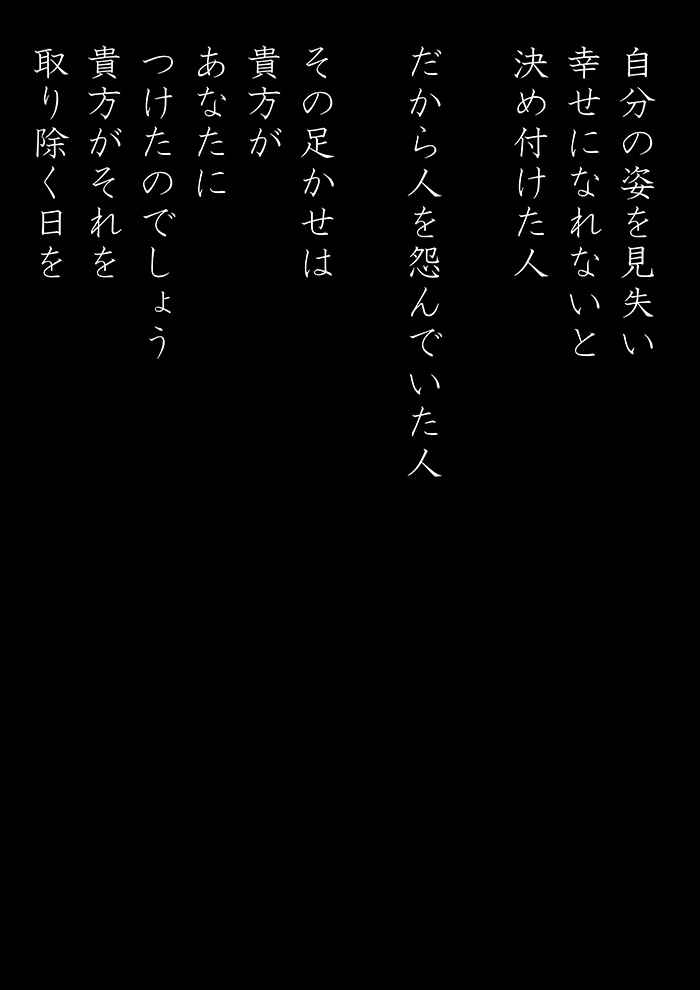 自分の姿を見失い
幸せになれないと
決め付けた人
だから人を怨んでいた人
その足かせは
貴方が
あなたに
つけたのでしょう
貴方がそれを
取り除く日を